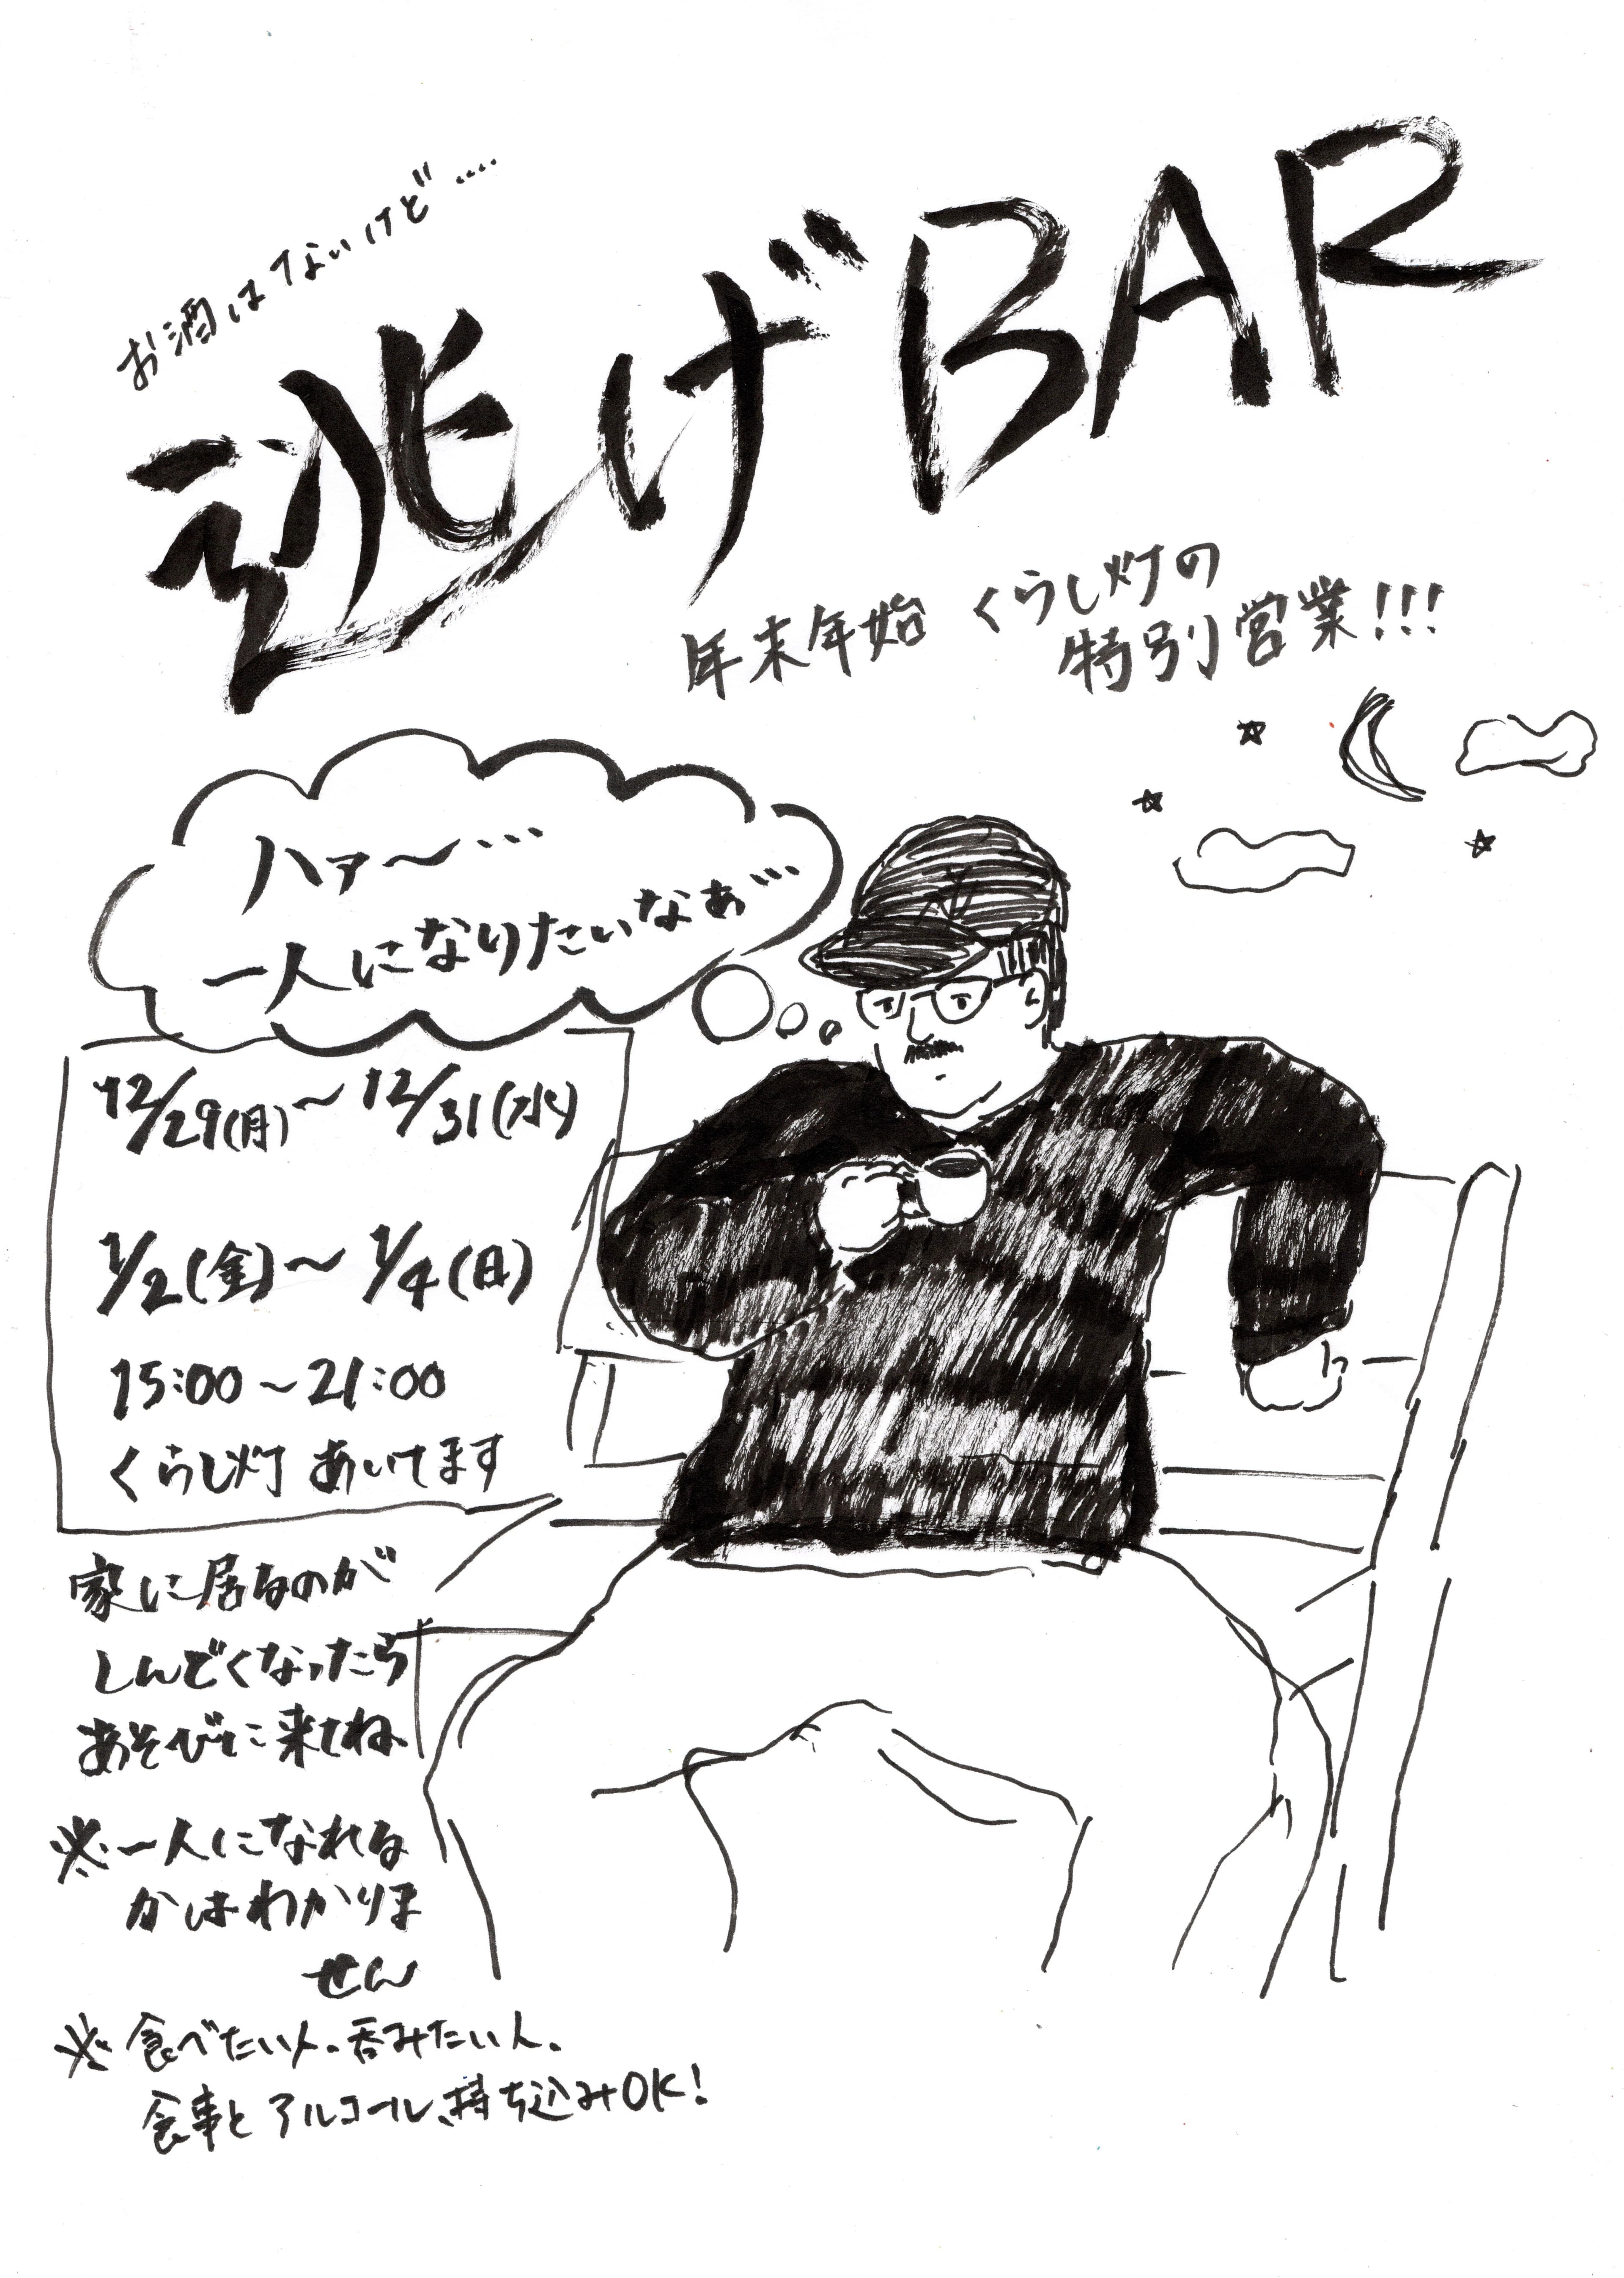 お酒はないけど....
逃げBAR
年末年始 くらし灯の
特別営業!!!
ハァ〜…
一人になりたいなぁ…
12/29(月)〜12/31(水)
1/2(金)〜1/4(日)
15:00〜21:00
くらし灯 あいてます
家に居るのが
しんどくなったら
あそびに来てね
※一人になれる
かはわかりま
せん
※食べたい人。呑みたい人。
食事とアルコール、持ち込みOK!